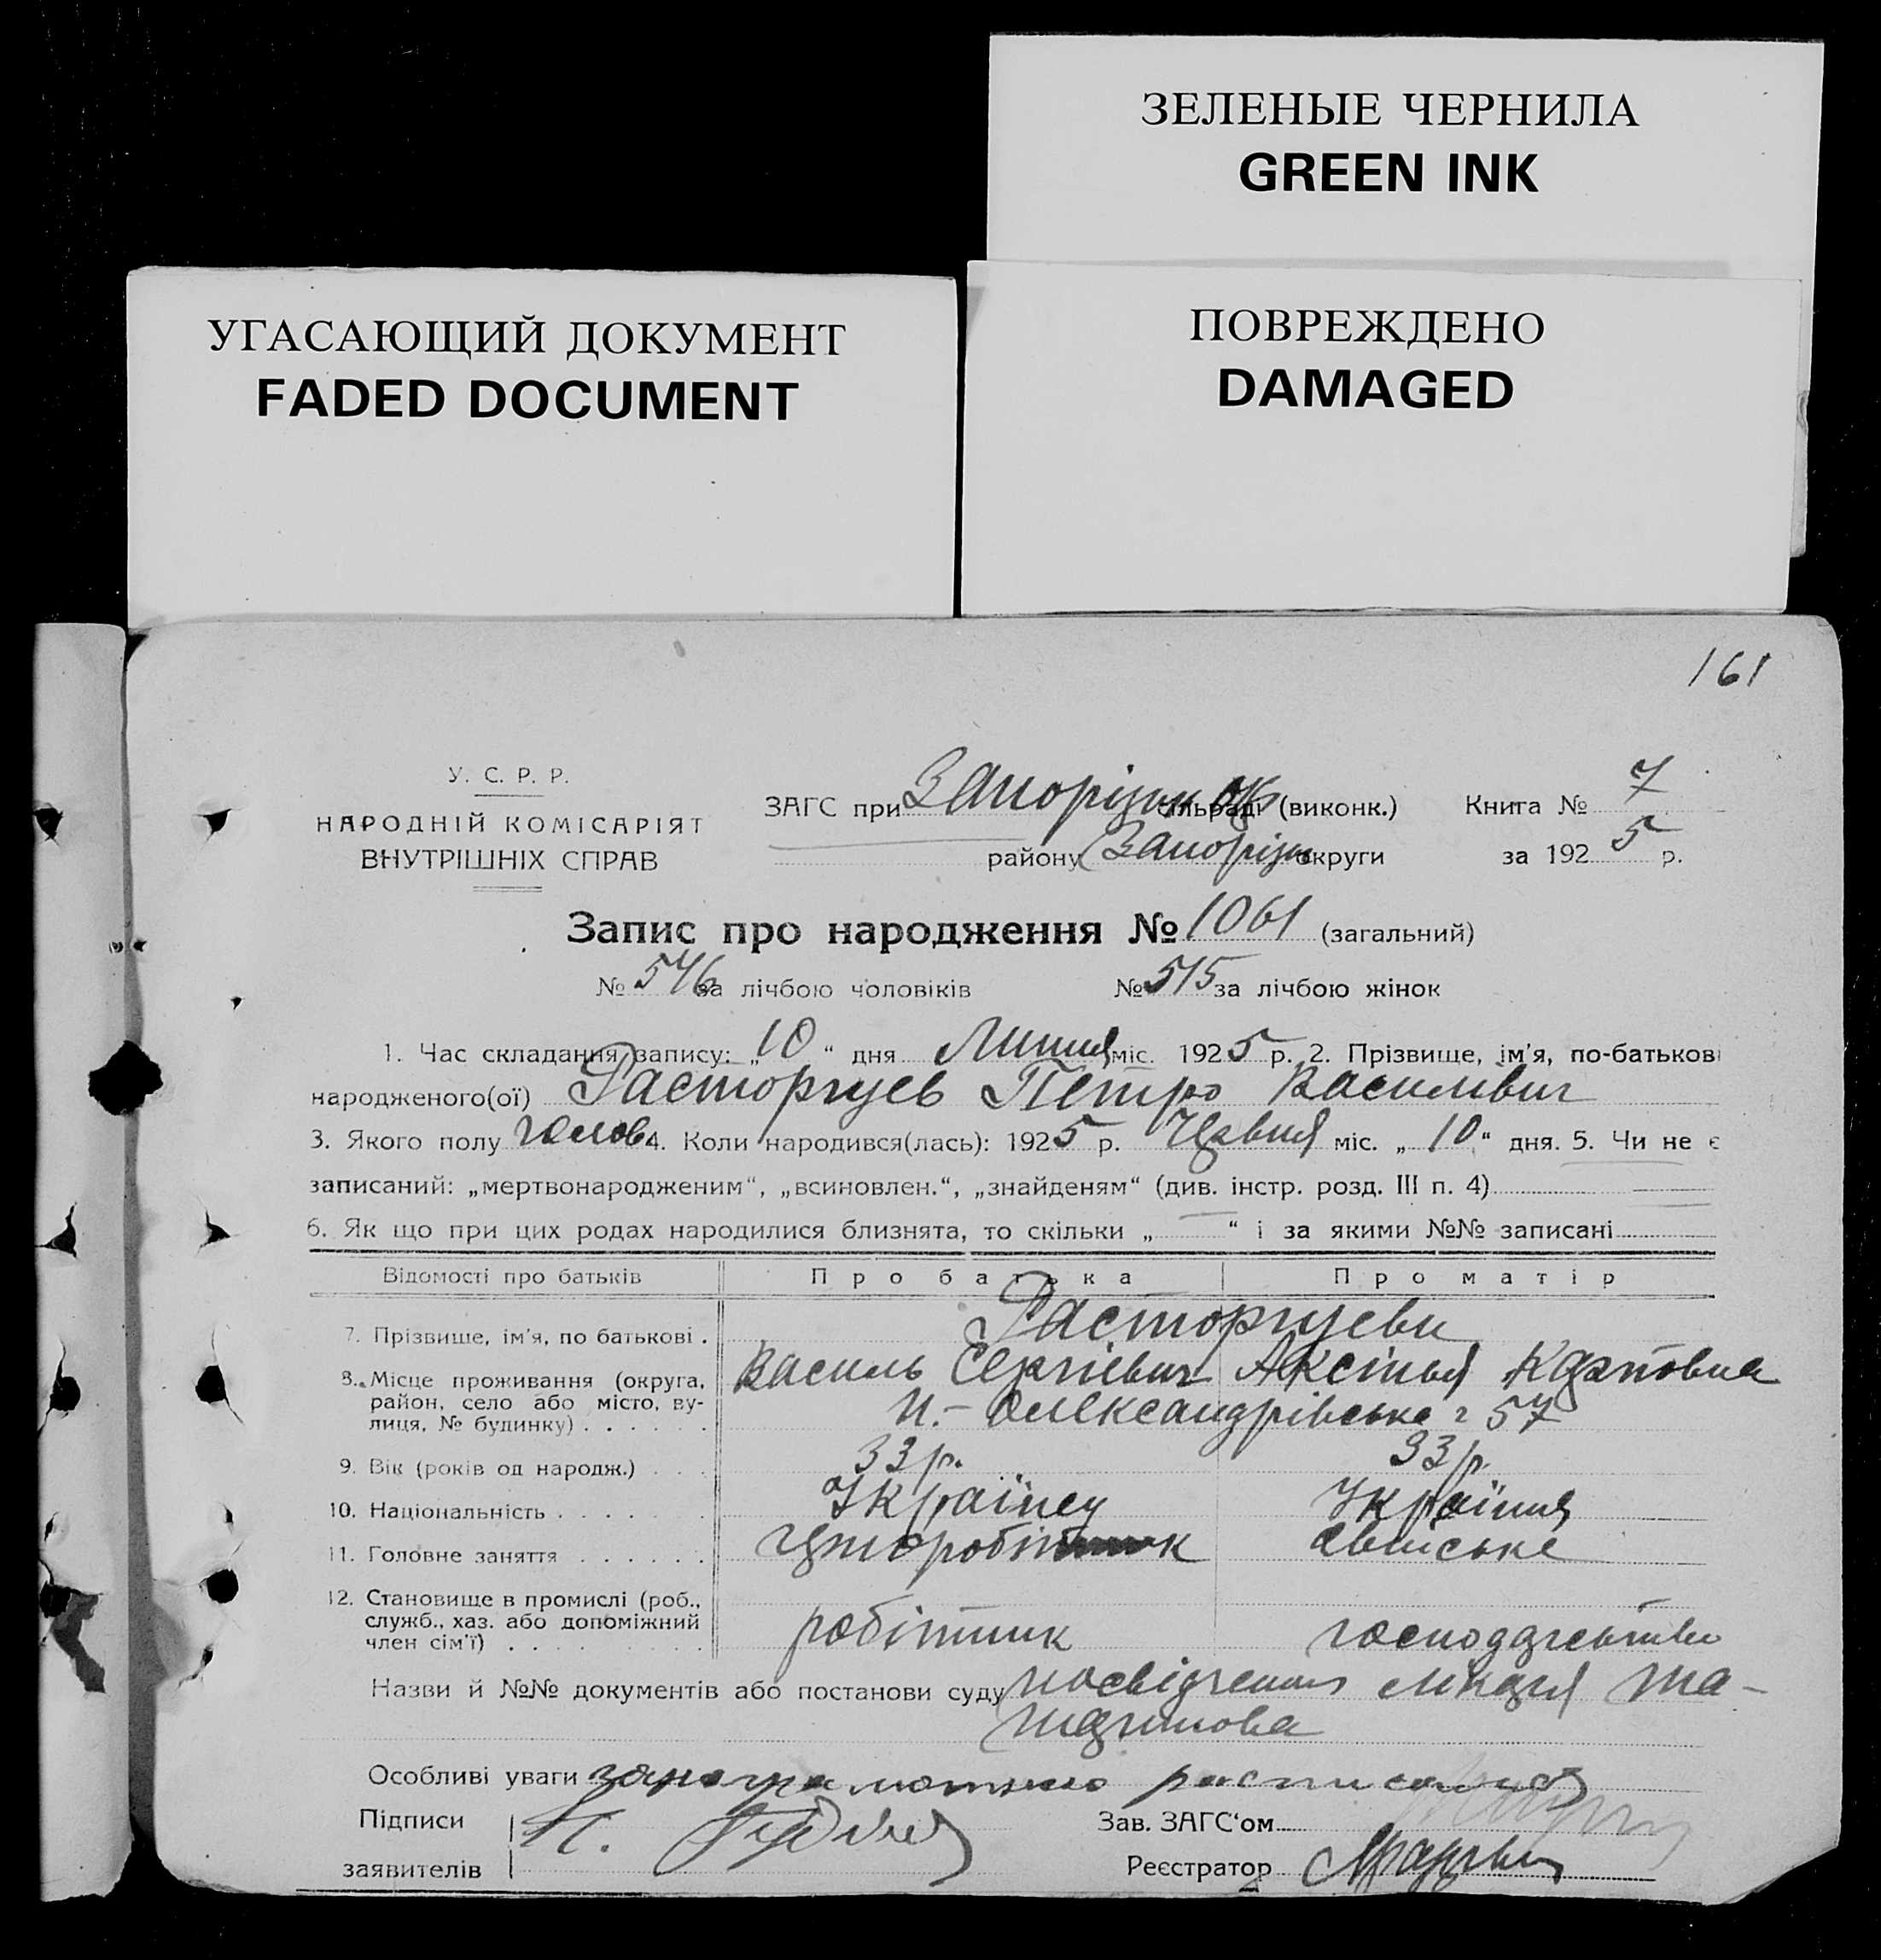 ЗЕЛЕНЫЕ ЧЕРНИЛА
GREEN INK
УГАСАЮЩИЙ ДОКУМЕНТ
FADED DOCUMENT
ПОВРЕЖДЕНО
DAMAGED
161
У. С. Р. Р.
НАРОДНІЙ КОМІСАРІЯТ
ВНУТРІШНІХ СПРАВ
ЗАГС при Запорізьк (виконк.) Книга № 7
району Запорізьк округи за 1925 р.
Запис про народження № 1061 (загальний)
№ 546 за лічбою чоловіків № 515 за лічбою жінок
1. Час складання запису: „10“ дня Липня міс. 1925 р. 2. Прізвище, ім’я, по-батькові
народженого(ої) Расторгуев Петро Василівич
3. Якого полу чолов 4. Коли народився(лась): 1925 р. Червня міс. „10“ дня. 5. Чи не є
записаний: „мертвонародженим“, „всиновлен.“, „знайденям“ (див. інстр. розд. III п. 4)
6. Як що при цих родах народилися близнята, то скільки „ “ і за якими №№ записані
Відомості про батьків Про батька Про матір
7. Прізвище, ім’я, по батькові . Расторгуеви
Василь Сергієвич Аксінья Карповна
8. Місце проживання (округа, район, село або місто, вулиця, № будинку) . . . . . . Олександрівська 57
9. Вік (років од народж.) . . . 33 р. 33 р.
10. Національність . . . . . . Українец Українця
11. Головне заняття . . . . . . свійське
12. Становище в промислі (роб., служб., хаз. або допоміжний член сім’ї) . . . робітник господарство
Назви й №№ документів або постанови суду посвідчення лікаря
Особливі уваги
Підписи
заявителів
Зав. ЗАГС‘ом
Реєстратор